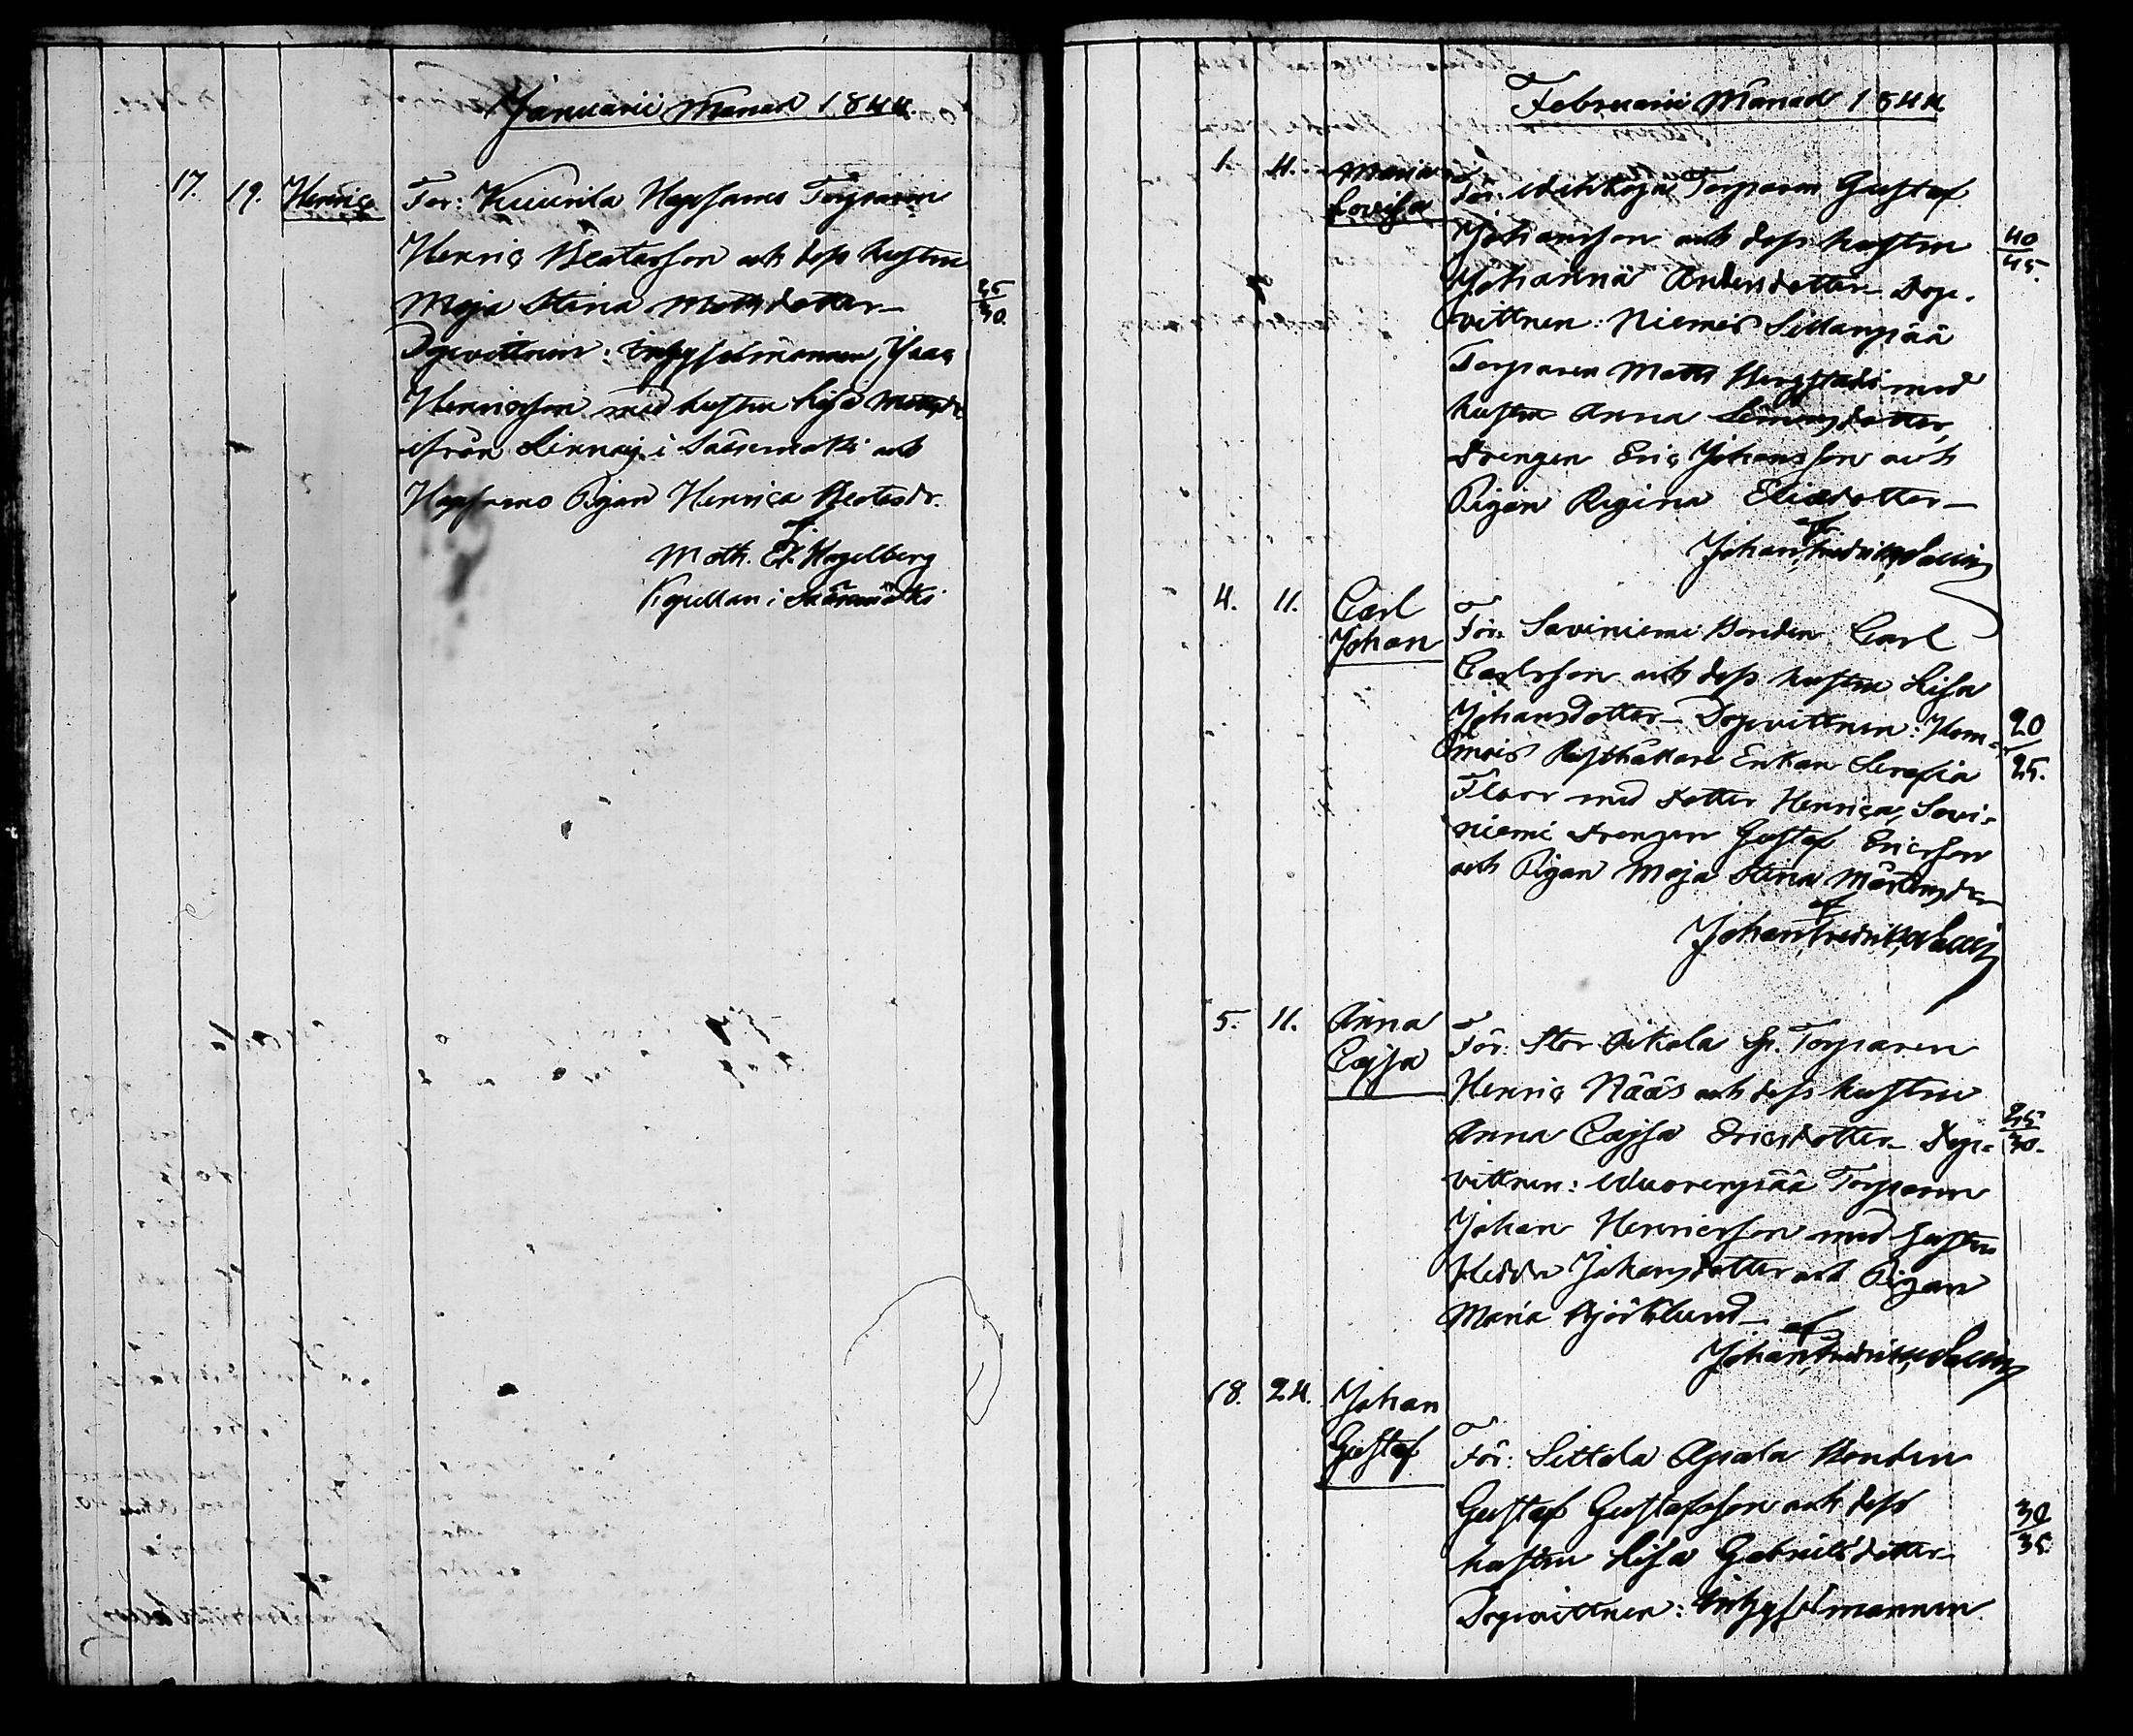 Januarii Månad 1844.
17. 19. Henric För: Kuurila Hapsamo Torparen
Henric Beatasson och dess hustru
Maja Stina Mattsdotter 25/30.
Dopvittnen: Inhyseslmannen Isaac
Henricsson med hustru Lisa Mattsdr
ifrån Linnais i Sääxmäki och
Hapsamo Pigan Henrica Beatesdr.
af
Math. Ef. Hagelberg
Kapellan i Sääxmäki
Februarii Månad 1844.
1. 4. Maria Lovisa För: Torparen Gustaf
Johansson och dess hustru 40/45.
Johanna Andersdotter Dop-
vittnen: Niemis Sillanpää
Torparen Matts Bergstedt med
hustru Anna Simonsdotter,
Drengen Eric Johansson och
Pigan Regina Eliædotter
af
Johan Fredrik
4. 11. Carl Johan För: Saviniemi Bonden Carl
Carlsson och dess hustru Lisa
Johansdotter Dopvittnen: Hom- 20/25.
mais Rusthållare Enkan Serafia
Floor med dotter Henrica, Savi-
niemi Drengen Gustaf Ericsson
och Pigan Maja Stina Mårtensdr
af
Johan Fredrik
5. 11. Anna Cajsa För: Stor Sikala Sp. Torparen
Henric Nääs och dess hustru
Anna Cajsa Ericsdotter Dop- 25/30.
vittnen: Wuorenpää Torparen
Johan Henricsson med hustru
Hedda Johansdotter och Pigan
Maria Björklund
af
Johan Fredrik
18. 24. Johan Gustaf
För: Sittala Apala Bonden
Gustaf Gustafsson och dess 30/35
hustru Lisa Gabrielsdotter
Dopvittnen: Inhyseslmannen